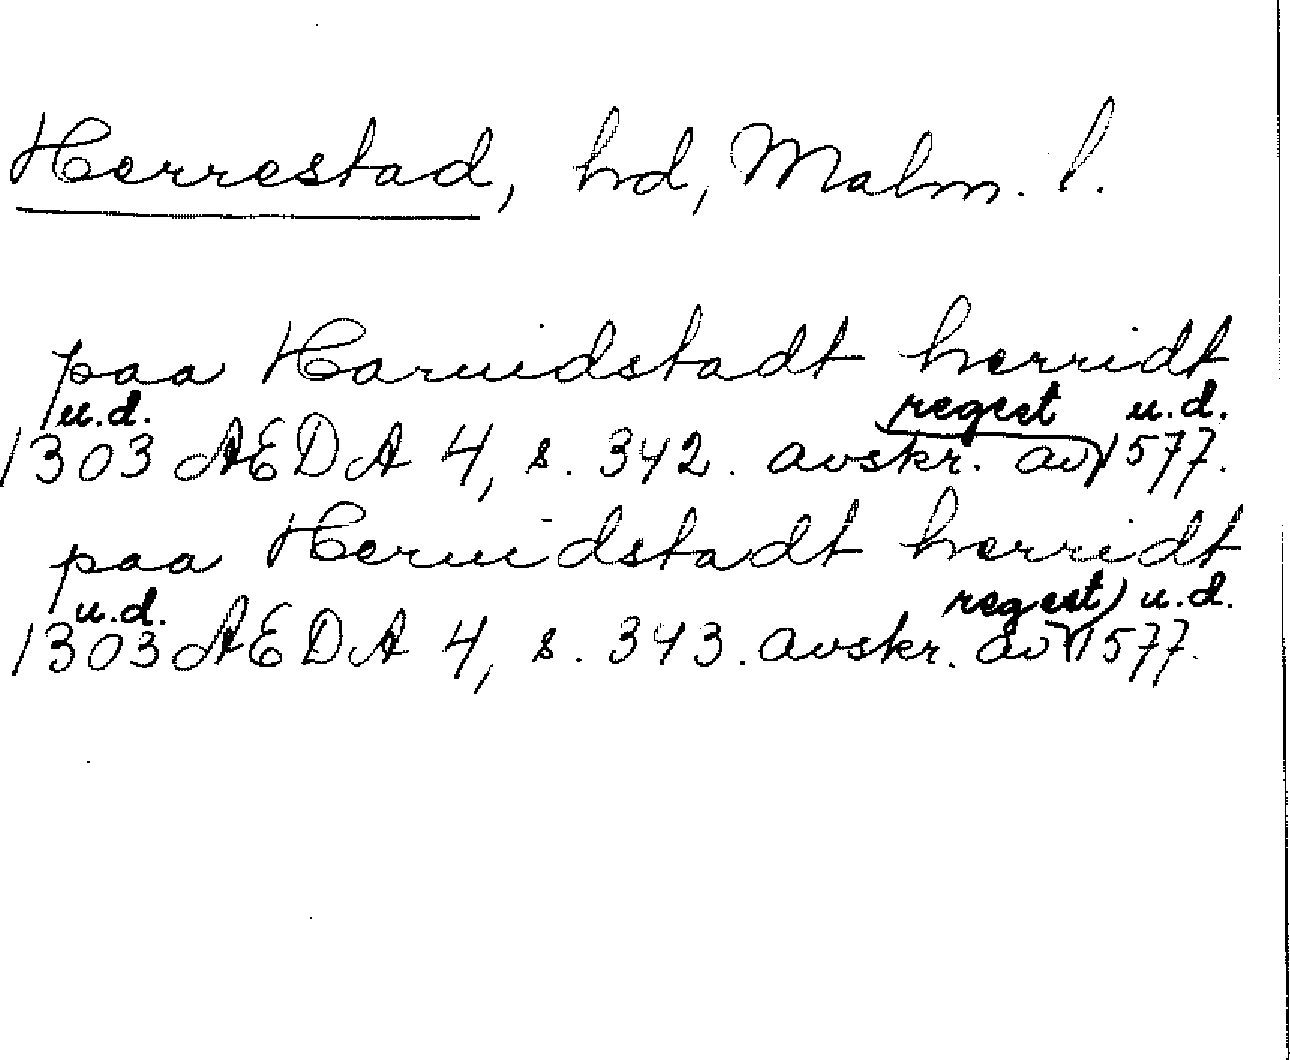 Herrestad, hd, Malm. l.
paa Haruidstadt herridt
u.d. regest u.d.
1303 AEDA 4, s. 342. avskr. av 1577.
paa Heruidstadt herridt
u.d. regest) u.d.
1303 AEDA 4, s. 343. avskr. av 1577.